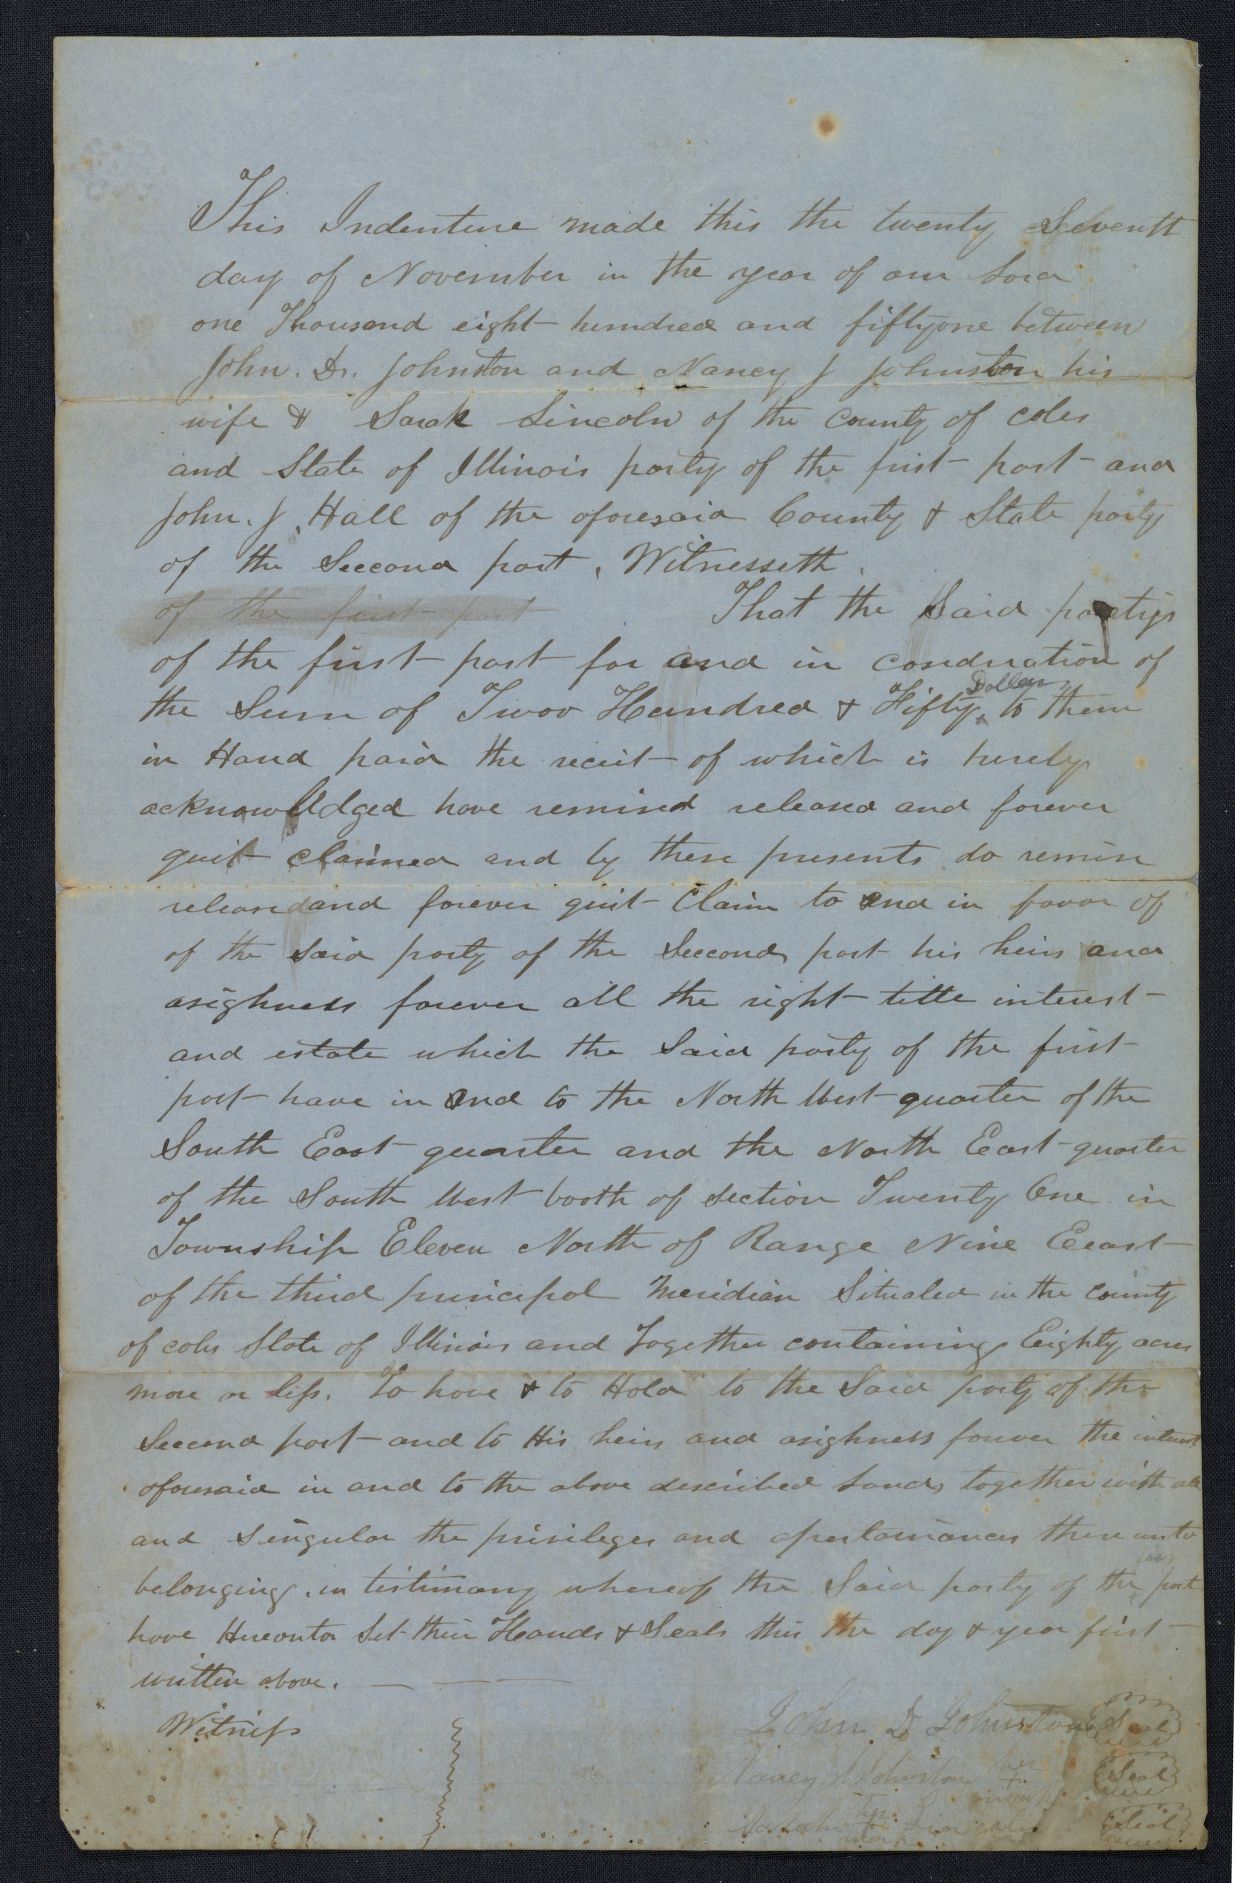 This Indenture made this the twenty Seventh
day of November in the year of our Lord
one Thousand eight hundred and fiftyone between
John. D. Johnston and Nancy J Johnston his
wife & Sarah Lincoln of the county of coles
and State of Illinois party of the first part and
John. J. Hall of the aforesaid County & State party
of the Seccond part, Witnesseth.
of the first part That the Said partys
of the first part for and in considration of
the Sum of Twoo Hundred & Fifty Dollars to them
in Hand paid the reciet of which is hereby
acknowlldged have remised released and forever
quit claimed and by these presents do remise
released and forever quit Claim to and in favor of
of the said party of the Seccond part his heirs and
asighness forever all the right title interest
and estate which the Said party of the first
part have in and to the North West quarter of the
South East quarter and the North East quarter
of the South West of Section Twenty One in
Township Eleven North of Range Nine Eeast
of the third principal Meridian Situated in the county
of coles State of Illinois and Together containing Eighty acres
more or less. To have & to Hold to the Said party of the
Seccond part and to His heirs and asighness forever the interest
aforesaid in and to the above described Lands together with all
and Singular the privileges and apertainances there unto
belonging. in testimony whereof the Said party of the first part
have Hereonto Set their Hands & Seals this the day & year first
written above.
Witness
John D Johnston Seal
Nancy J Johnston her mark Seal
Sarah her mark Lincoln Seal